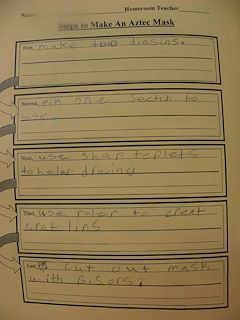 Homeroom Teacher
Name:
Steps to Make An Aztec Mask
First, make diesins.
Second, pik one sectch to
use
Next, use shap teplets
to helap drwing
Then, use ruler to creat
srat lins
Last, cut out mask
with sisors.